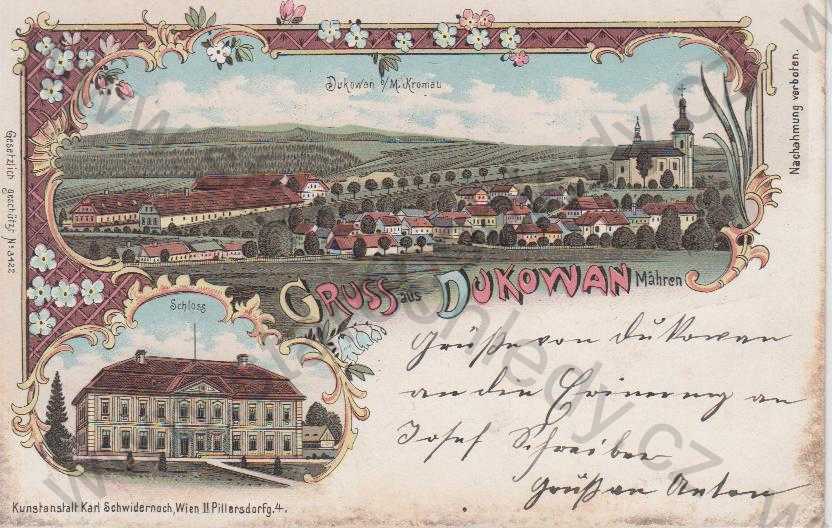 Dukowan b/M. Kromau
Nachahmung verboten.
Gesetzlich geschützt N° 3422
GRUSS aus DUKOWAN Mähren
Schloss
Grüße von Dukowan
an den Erinerung an
Josef Schreiber
Grüßen Anton
Kunstanstalt Karl Schwidernoch, Wien II Pillersdorfg. 4.